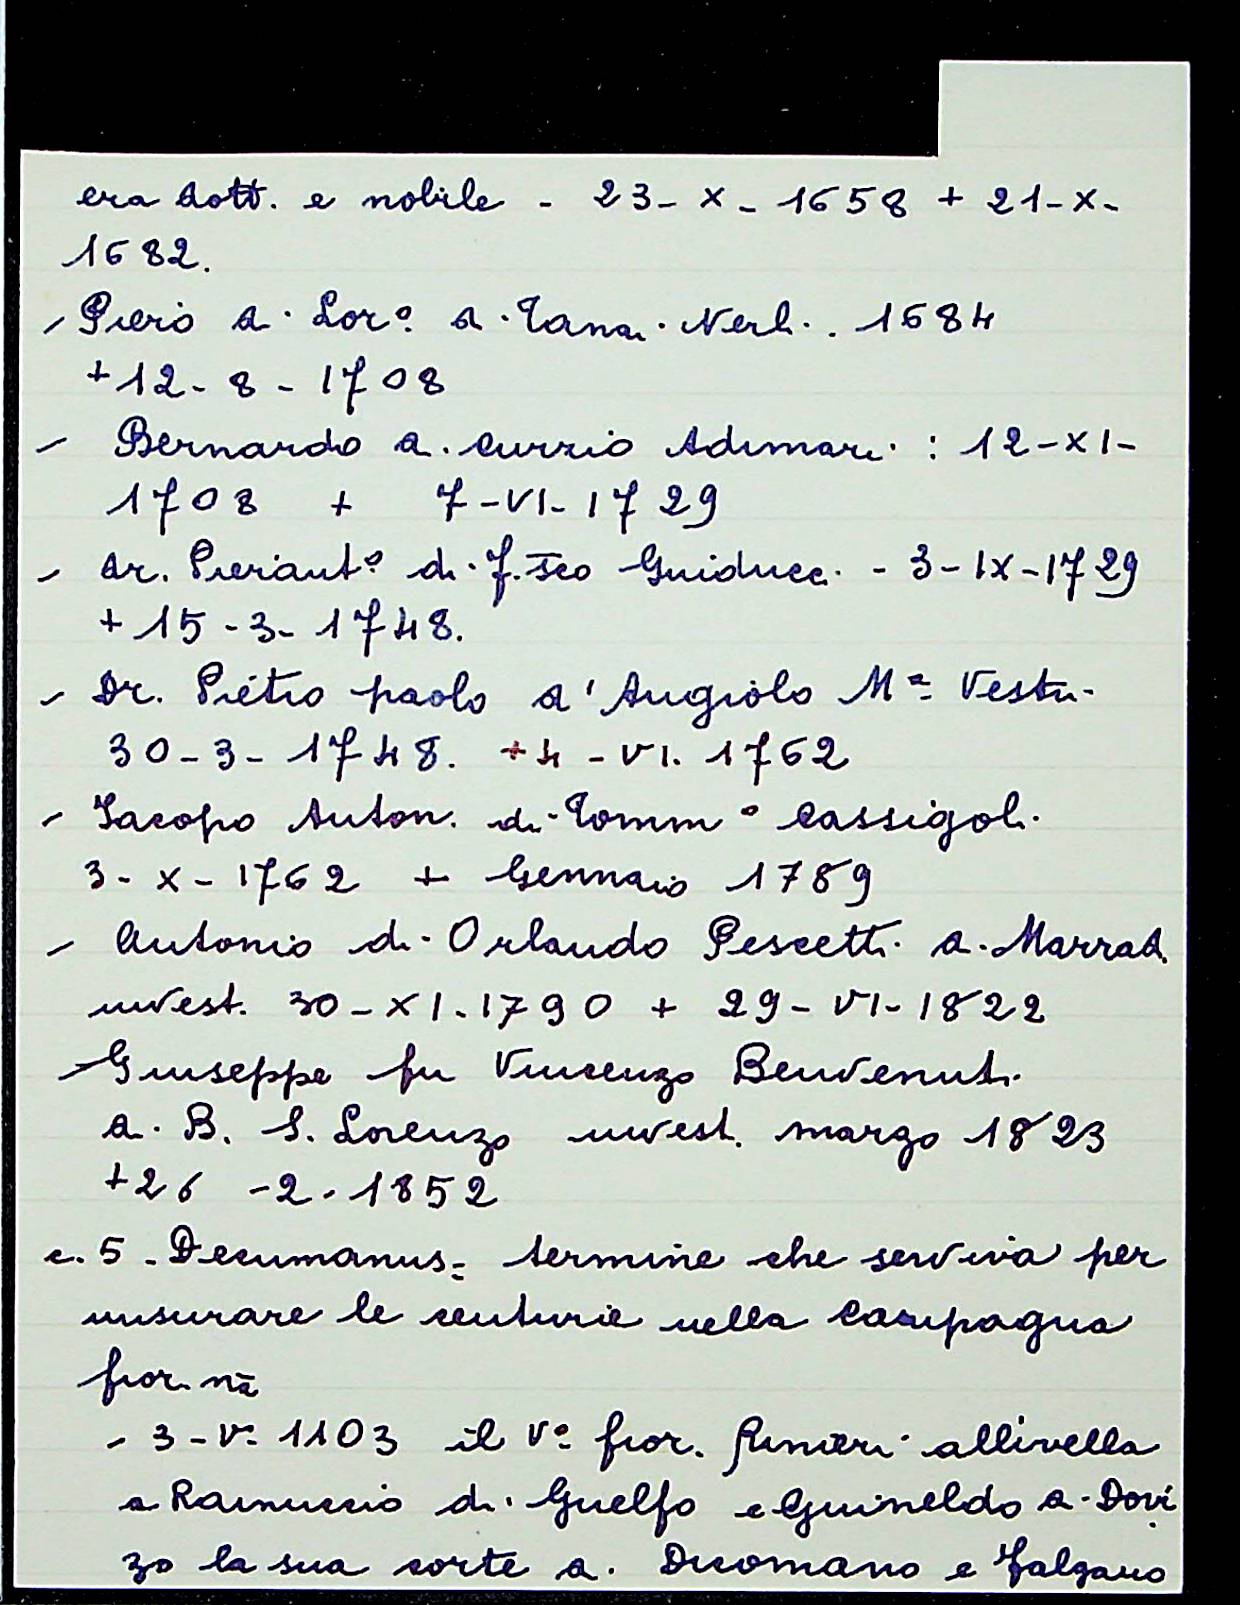 era dott. e nobile - 23- X - 1658 + 21-X-
1682.
- Piero di Lor.º di Tanai Nerli . 1684
+12- 8 - 1708
- Bernardo di Curzio Adimari : 12-XI-
1708 + 7-VI-1729
- dr. Pierant.º di f.sco Guiducci - 3-IX-1729
+ 15-3-1748.
- Dr. Piétro paolo d'Angiolo Mª Vestri
30-3-1748. +4-VI. 1762
- Jacopo Anton. di Tomm º Cassigoli
3-X-1762 + Gennaio 1789
- Antonio di Orlando Pescetti di Marradi
invest. 30-XI-1790 + 29-VI-1822
- Giuseppe fu Vincenzo Benvenuti
di B. S. Lorenzo invest. marzo 1823
+26 -2-1852
c. 5 - Decumanus = termine che serviva per
misurare le centurie nella campagna
fior.na
- 3-Vº 1103 il Vº fior. Rinieri allivella
a Rainuccio di Guelfo e Guineldo di Dovi
zo la sua corte di Dicomano e Falgano